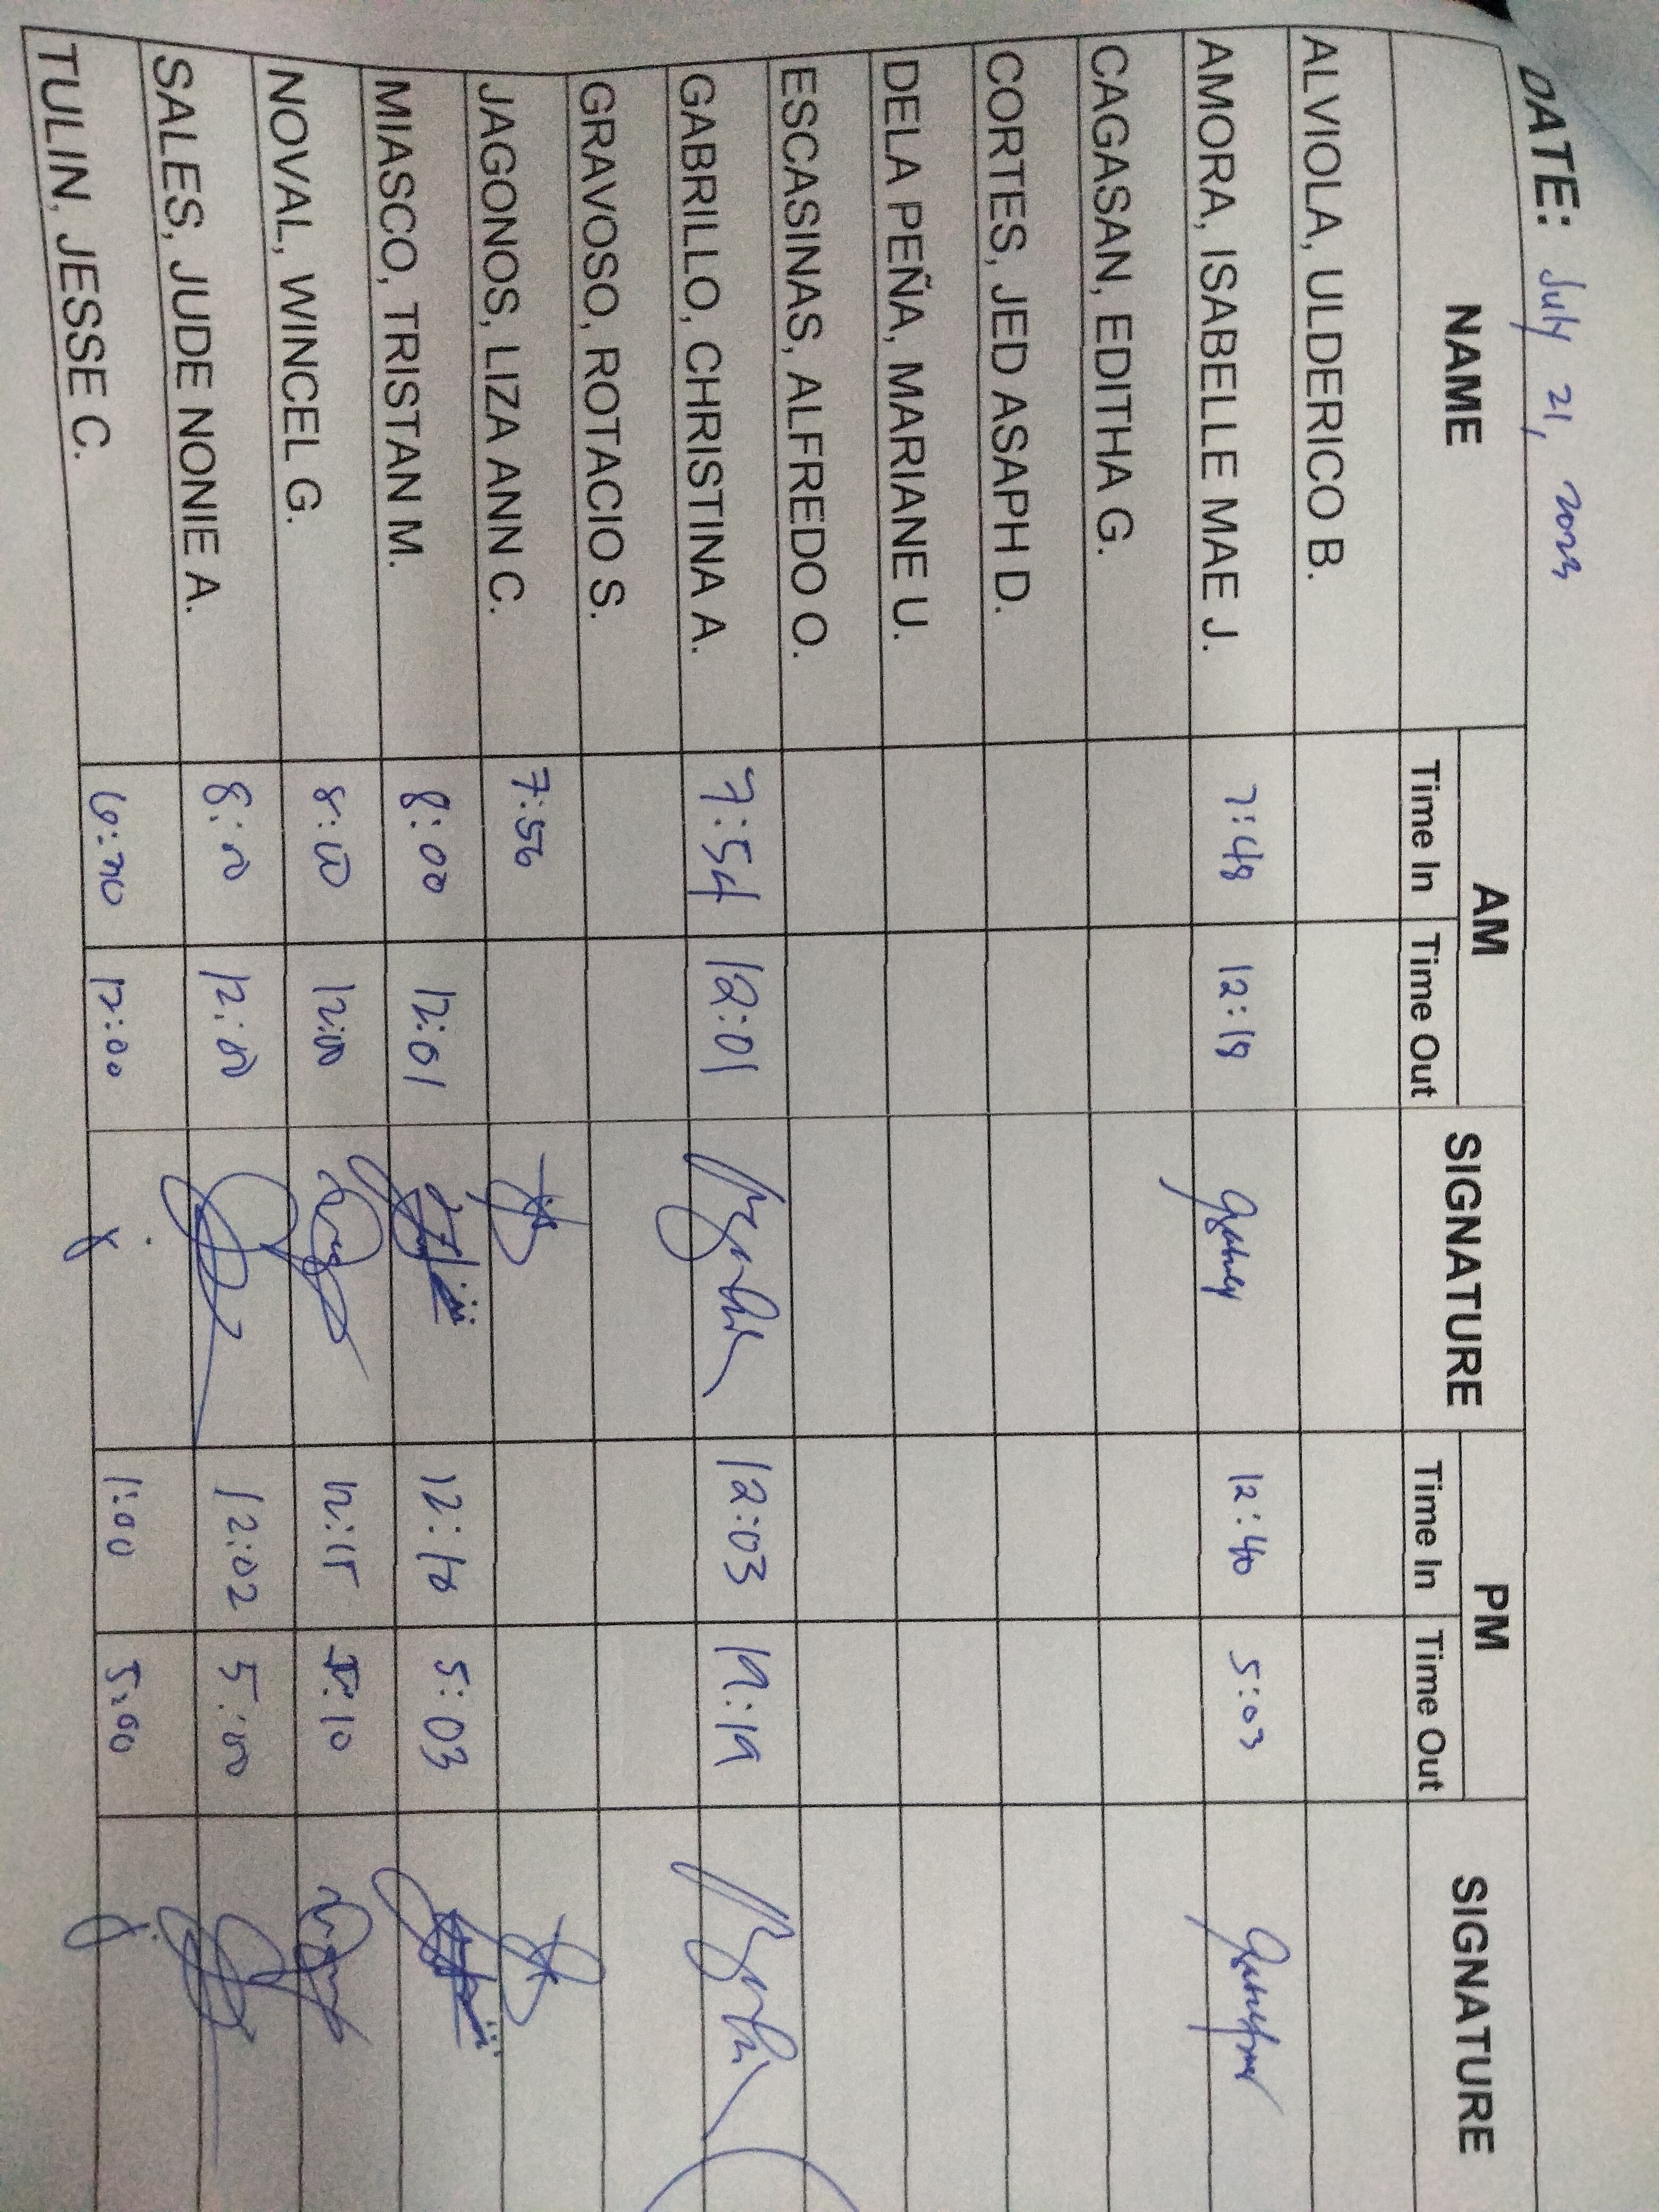 DATE: July 21, 2023
NAME AM SIGNATURE PM SIGNATURE
Time In Time Out Time In Time Out
ALVIOLA, ULDERICO B.
AMORA, ISABELLE MAE J. 7:48 12:18 12:40 5:03
CAGASAN, EDITHA G.
CORTES, JED ASAPH D.
DELA PEÑA, MARIANE U.
ESCASINAS, ALFREDO O.
GABRILLO, CHRISTINA A. 7:54 12:01 12:03 19:19
GRAVOSO, ROTACIO S.
JAGONOS, LIZA ANN C. 7:56
MIASCO, TRISTAN M. 8:00 12:01 12:10 5:03
NOVAL, WINCEL G. 8:00 12:00 12:15 5:10
SALES, JUDE NONIE A. 8:00 12:00 12:02 5:00
TULIN, JESSE C. 12:00 1:00 5:00